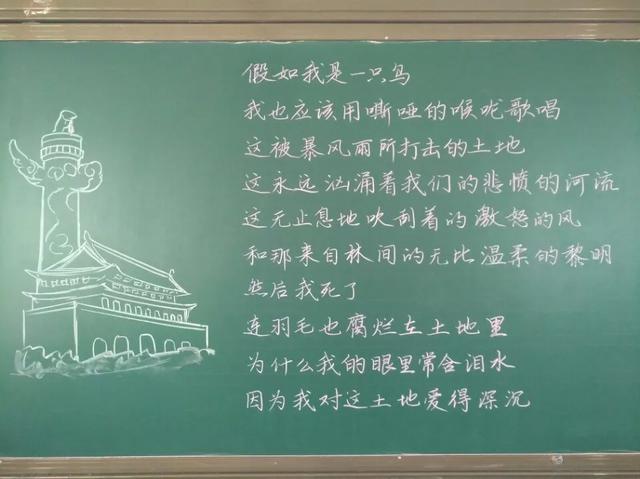 假如我是一只鸟
我也应该用嘶哑的喉咙歌唱
这被暴风雨所打击的土地
这永远汹涌着我们的悲愤的河流
这无止息地吹刮着的激怒的风
和那来自林间的无比温柔的黎明
然后我死了
连羽毛也腐烂在土地里
为什么我的眼里常含泪水
因为我对这土地爱得深沉